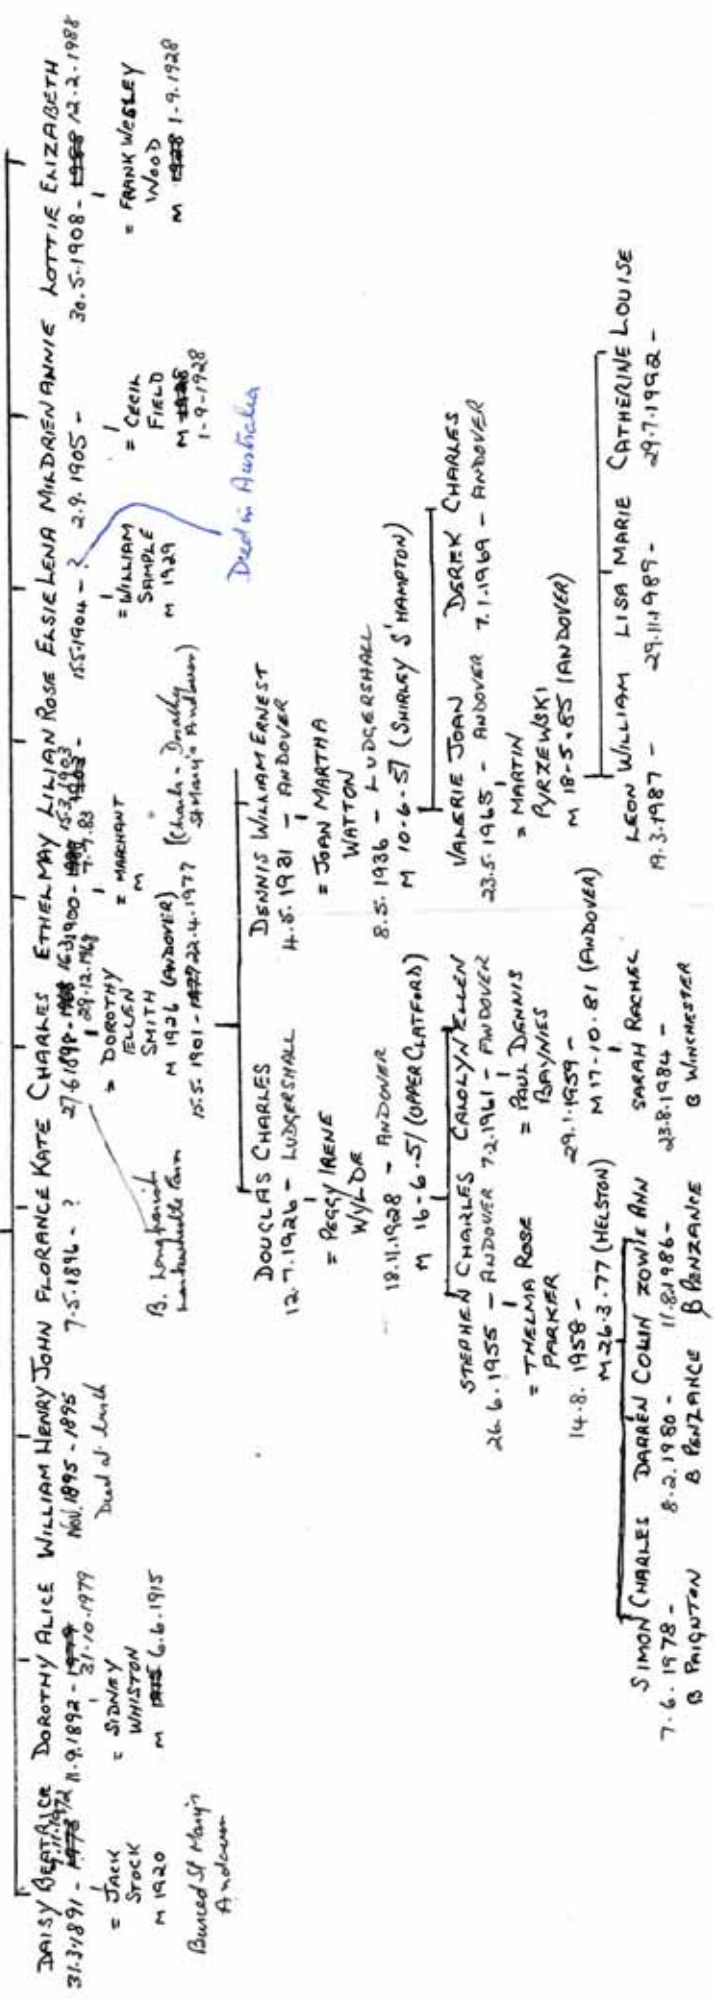 DAISY BEATRICE
9.11.1972
31.3.1891 - 1973
= JACK
STOCK
M 1920
Buried St Mary's
Andover
DOROTHY ALICE
11.9.1892 - 1979
31.10.1979
= SIDNEY
WHISTON
M 1915 6.6.1915
WILLIAM HENRY JOHN
Nov. 1895 - 1895
Died at birth
FLORANCE KATE
7.5.1896 - ?
CHARLES
27.6.1898 - 1968
29.12.1968
B. Longparish
Farm
= DOROTHY
ELLEN
SMITH
M 1926 (ANDOVER)
15.5.1901 - 1977 22.4.1977 (Charles - Dorothy
St Mary's Andover)
ETHEL MAY
16.3.1900 -
7.7.83
= MARCHANT
M
LILIAN ROSE
15.3.1903
1902 -
ELSIE LENA
15.5.1904 - ?
= WILLIAM
SAMPLE
M 1929
Died in Australia
MILDRIEN ANNIE
2.9.1905 -
= CECIL
FIELD
M 1928
1-9-1928
LOTTIE ELIZABETH
30.5.1908 - 1988 12.2.1988
= FRANK WESLEY
WOOD
M 1928 1-9.1928
DOUGLAS CHARLES
12.7.1926 - LUDGERSHALL
= PEGGY IRENE
WYLDE
18.11.1928 - ANDOVER
M 16-6-51 (UPPER CLATFORD)
DENNIS WILLIAM ERNEST
4.5.1931 - ANDOVER
= JOAN MARTHA
WATTON
8.5.1936 - LUDGERSHALL
M 10-6-57 (SHIRLEY S'HAMPTON)
STEPHEN CHARLES
26.6.1955 - ANDOVER
= THELMA ROSE
PARKER
14.8.1958 -
M 26.3.77 (HELSTON)
CAROLYN ELLEN
7.2.1961 - ANDOVER
= PAUL DENNIS
BAYNIES
29.1.1959 -
M 17-10.81 (ANDOVER)
VALERIE JOAN
23.5.1965 - ANDOVER
= MARTIN
PYRZEWSKI
M 18-5-85 (ANDOVER)
DEREK CHARLES
7.1.1969 - ANDOVER
SIMON CHARLES
7.6.1978 -
B PAIGNTON
DARREN COLIN
8-2.1980 -
B PENZANCE
ZOWIE ANN
11.8.1986 -
B PENZANCE
SARAH RACHEL
23.8.1984 -
B WINCHESTER
LEON WILLIAM
19.3.1987 -
LISA MARIE
29.11.1989 -
CATHERINE LOUISE
29.7.1992 -